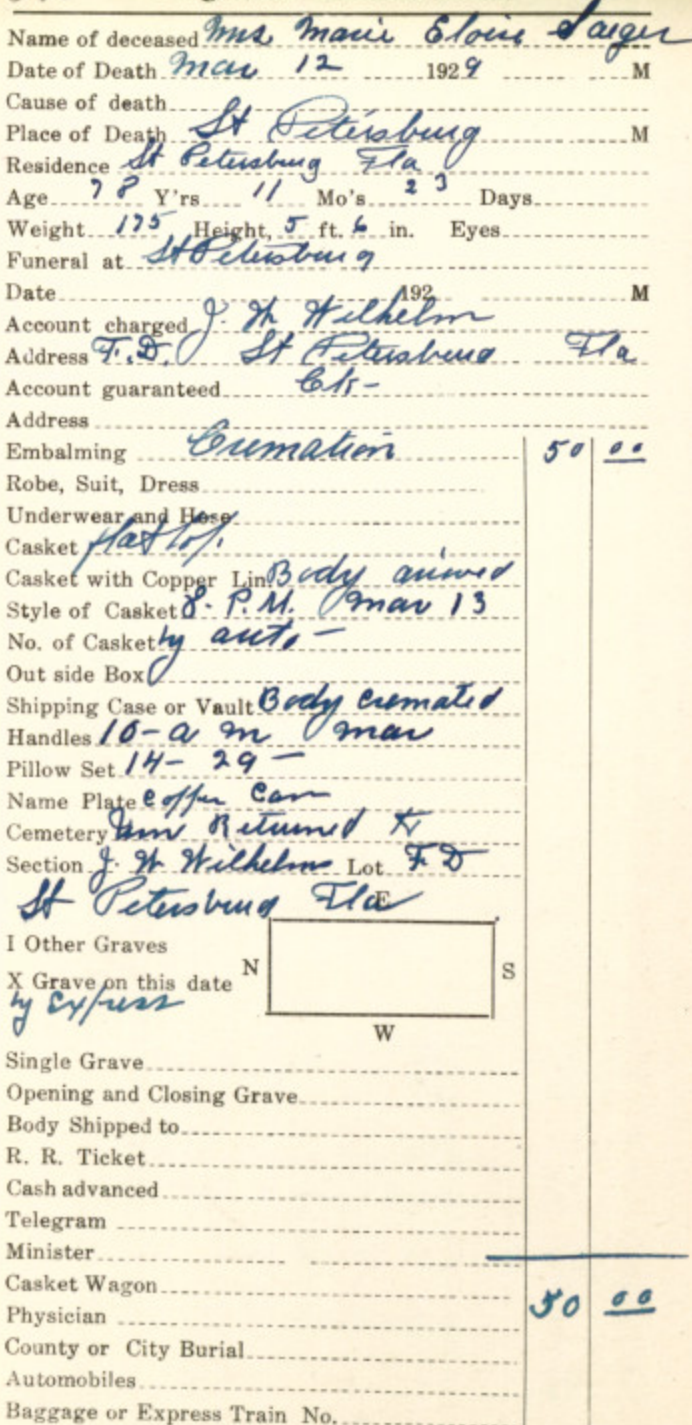 Name of deceased Mrs. Marie Eloise Saeger
Date of Death Mar 12 1929 M
Cause of death
Place of Death St Petersburg M
Residence St Petersburg Fla
Age 78 Y'rs 11 Mo's 23 Days
Weight 175 Height, 5 ft. 6 in. Eyes
Funeral at St Petersburg
Date 192 M
Account charged J. W. Wilhelm
Address F.D. St Petersburg Fla
Account guaranteed Ck-
Address
Embalming Cremation 50 00
Robe, Suit, Dress
Underwear and Hose
Casket flat top.
Casket with Copper Lin. Body arrived
Style of Casket 8. P.M. Mar 13
No. of Casket by auto -
Out side Box
Shipping Case or Vault Body cremated
Handles 10 - a m Mar
Pillow Set 14 - 29 -
Name Plate Copper Can
Cemetery Urn Returned to
Section J. W. Wilhelm Lot F D
St Petersburg Fla
E
I Other Graves
N S
X Grave on this date
by Express
W
Single Grave
Opening and Closing Grave
Body Shipped to
R. R. Ticket
Cash advanced
Telegram
Minister
Casket Wagon
Physician 50 00
County or City Burial
Automobiles
Baggage or Express Train No.